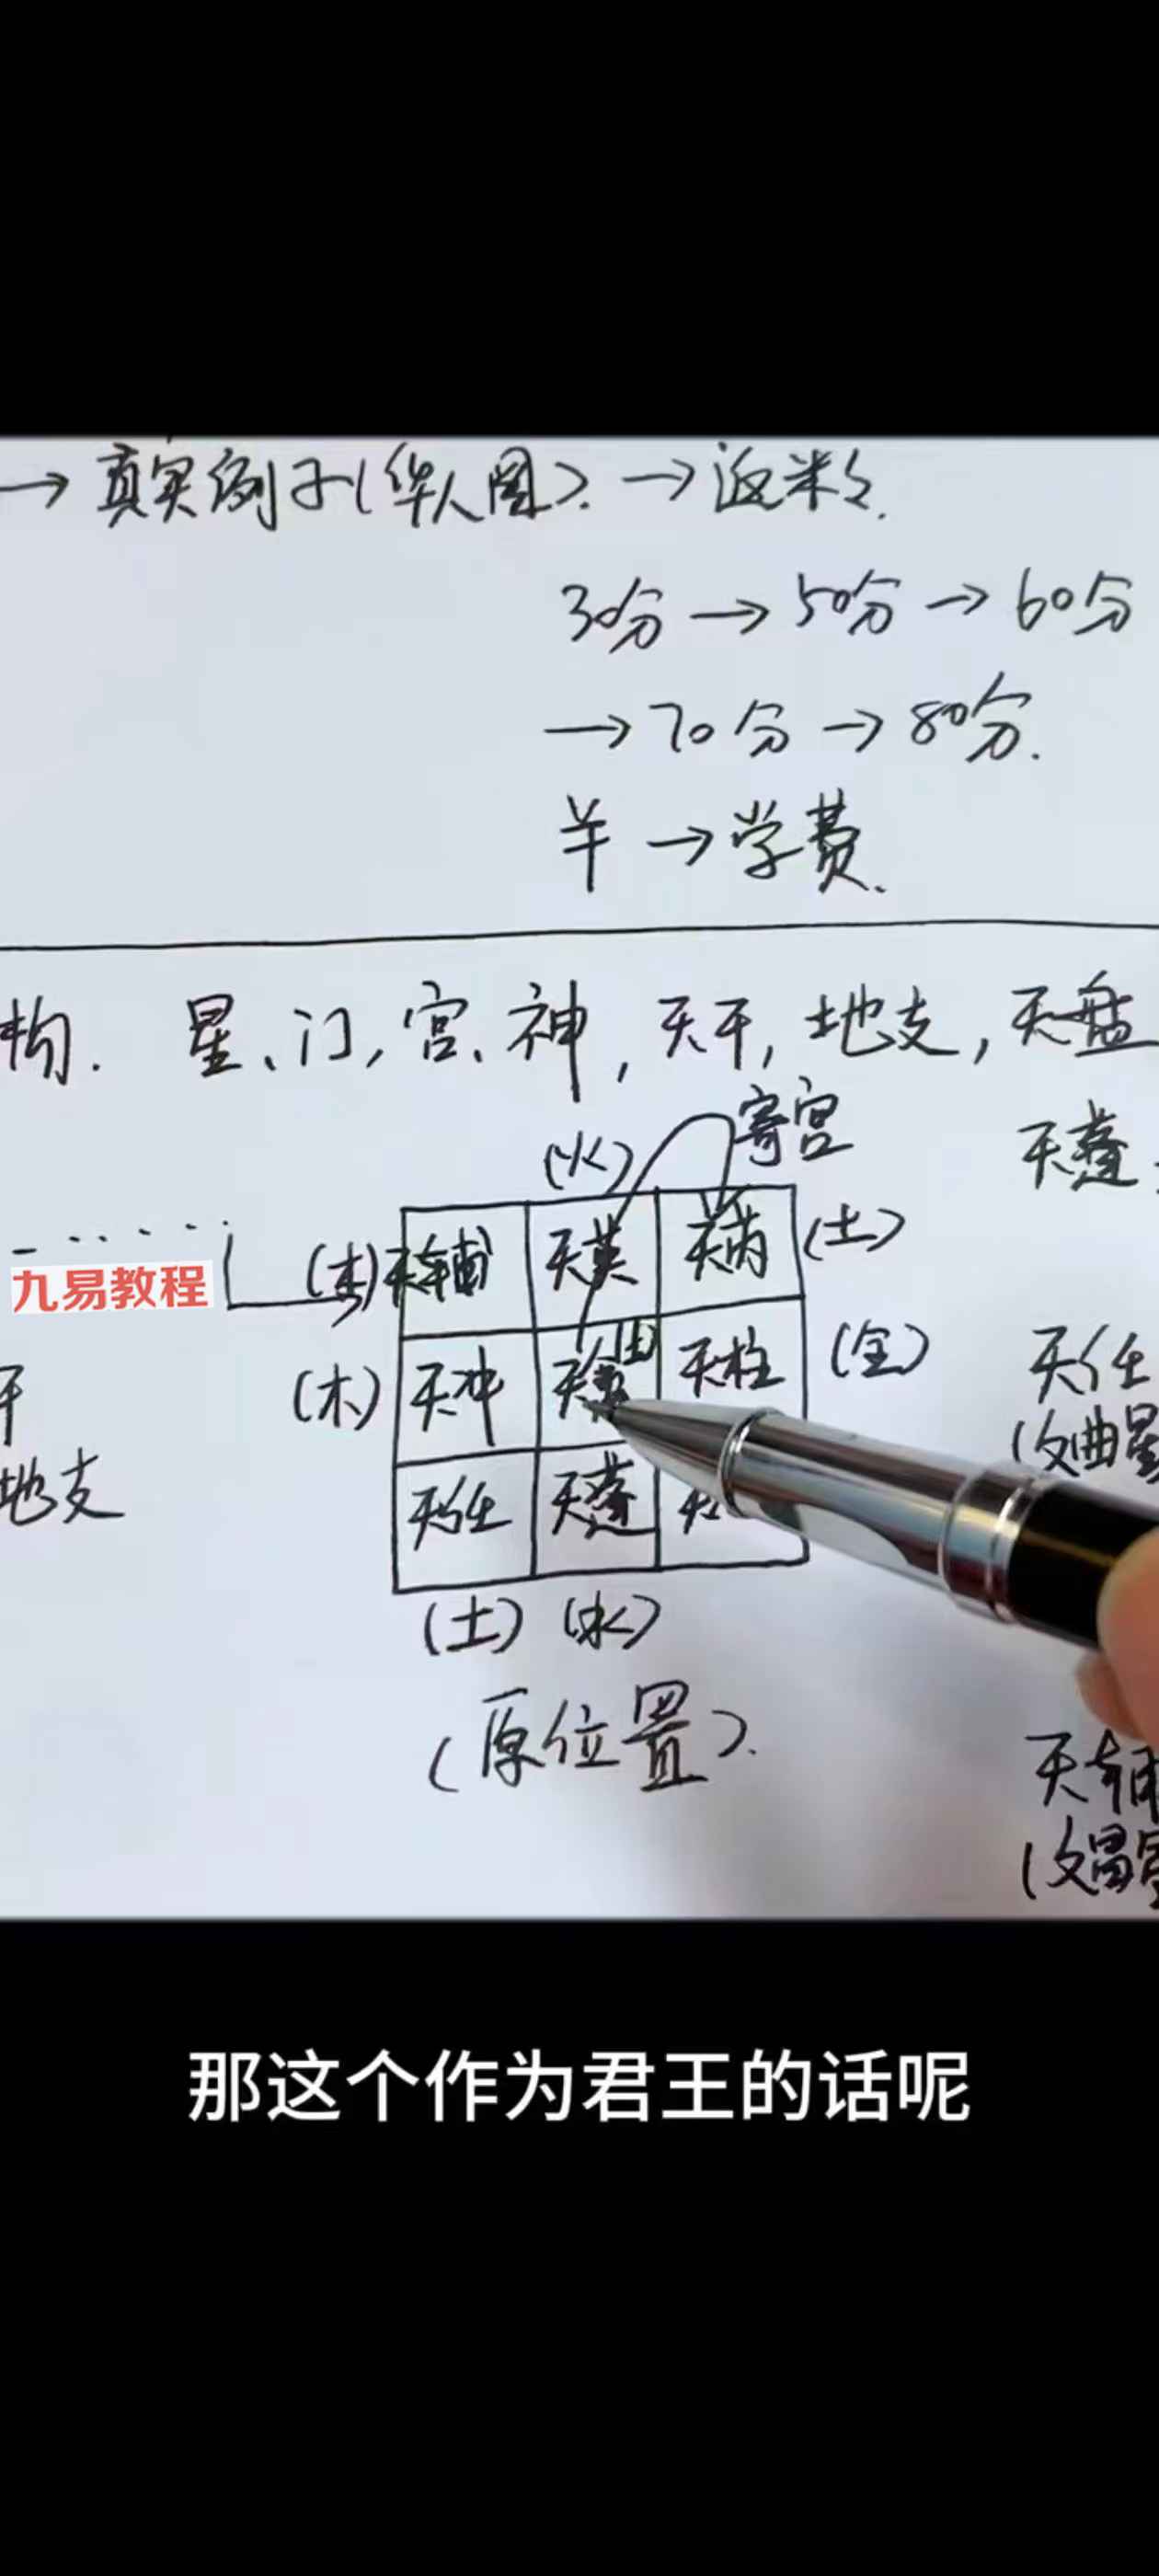 →真实例子(华人圈).→返米
30分→50分→60分
→70分→80分.
羊→学费.
构. 星、门,宫、神,天干,地支,天盘
(火) 寄宫 天蓬
九易教程 (木) 天辅 天英 天芮 (土)
干 (木) 天冲 (土) 天柱 (金) 天任
地支 (文曲星
天任 天蓬
(土) (水)
(原位置).
天辅
(文昌
那这个作为君王的话呢